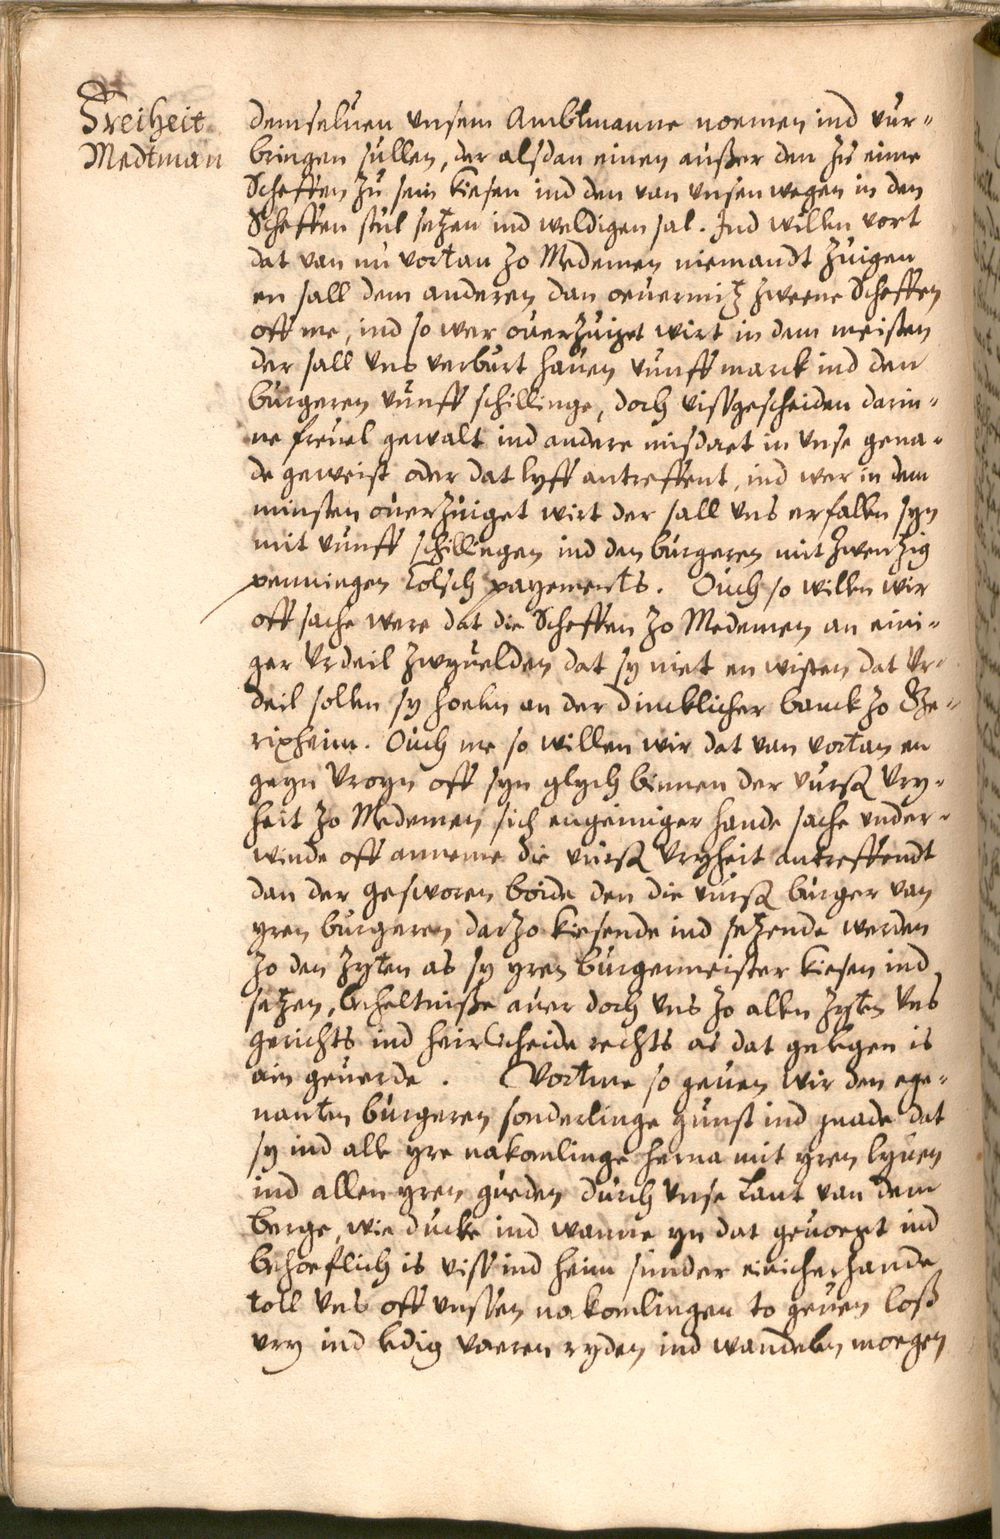 Freiheit
Medtman
demseluen unsem Ambtmanne noemen ind vur-
bringen sullen, der alsdan einen ausser den zu eime
Scheffen zu sein kiesen ind den van unsen wegen in den
Scheffen stul setzen ind weldigen sal. Ind willen vort
dat van nu vortan zo Medemen niemandt zuigen
en sall dem anderen dan oeuermitz zweene Scheffen
off me, ind so wer ouerzuiget wirt in dem meisten
der sall uns verburt hauen vunff marck ind den
burgeren vunff schillinge, doch uissgescheiden darin-
ne freuel gewalt ind andere misdaet in unse gena-
de geweist oder dat lyff antreffent, ind wer in dem
minsten ouerzuiget wirt der sall uns erfallen syn
mit vunff schillingen ind den burgeren mit zwenzig
penningen Colsch payements. Ouch so willen wir
off sache were dat die Scheffen zo Medemen an eini-
ger urdeil zwyuelden dat sy niet en wisten, dat ur-
deil sollen sy hoelen an der dincklicher banck zo Ge-
rixheim. Ouch me so willen wir dat van vortan en
geyn vrogn off syn glych binnen der vurss vry-
heit zo Medemen sich engeiniger hande sache under-
winde off anneme die vurss vryheit antreffendt
dan der gesworen boide den die vurss burger van
yren burgeren darzo kiesende ind setzende werden
zo den zyten as sy yren burgermeister kiesen ind
setzen, beheltnisse auer doch uns zo allen zyten uns
gerichts ind heirscheide rechts as dat gelegen is
ain geuerde. Vortme so geuen wir den ege-
nanten burgeren sonderlinge gunst ind gnade dat
sy ind alle yre nakomlinge herna mit yren lyuen
ind allen yren gueden durch unse lant van dem
berge, wie ducke ind wanne yn dat geuoegt ind
behoeflich is uiss ind heim sunder einicherhande
toll uns off unssen nakomlingen to geuen loss
vry ind ledig vaeren ryden ind wandelen moegen